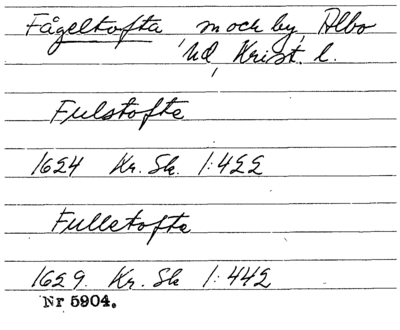 Fågeltofta, m och by, Albo
hd, Krist. l.
Fulstofte
1624 Kr. Sk. 1:422
Fulletofte
1629. Kr. Sk 1:442
Nr 5904.